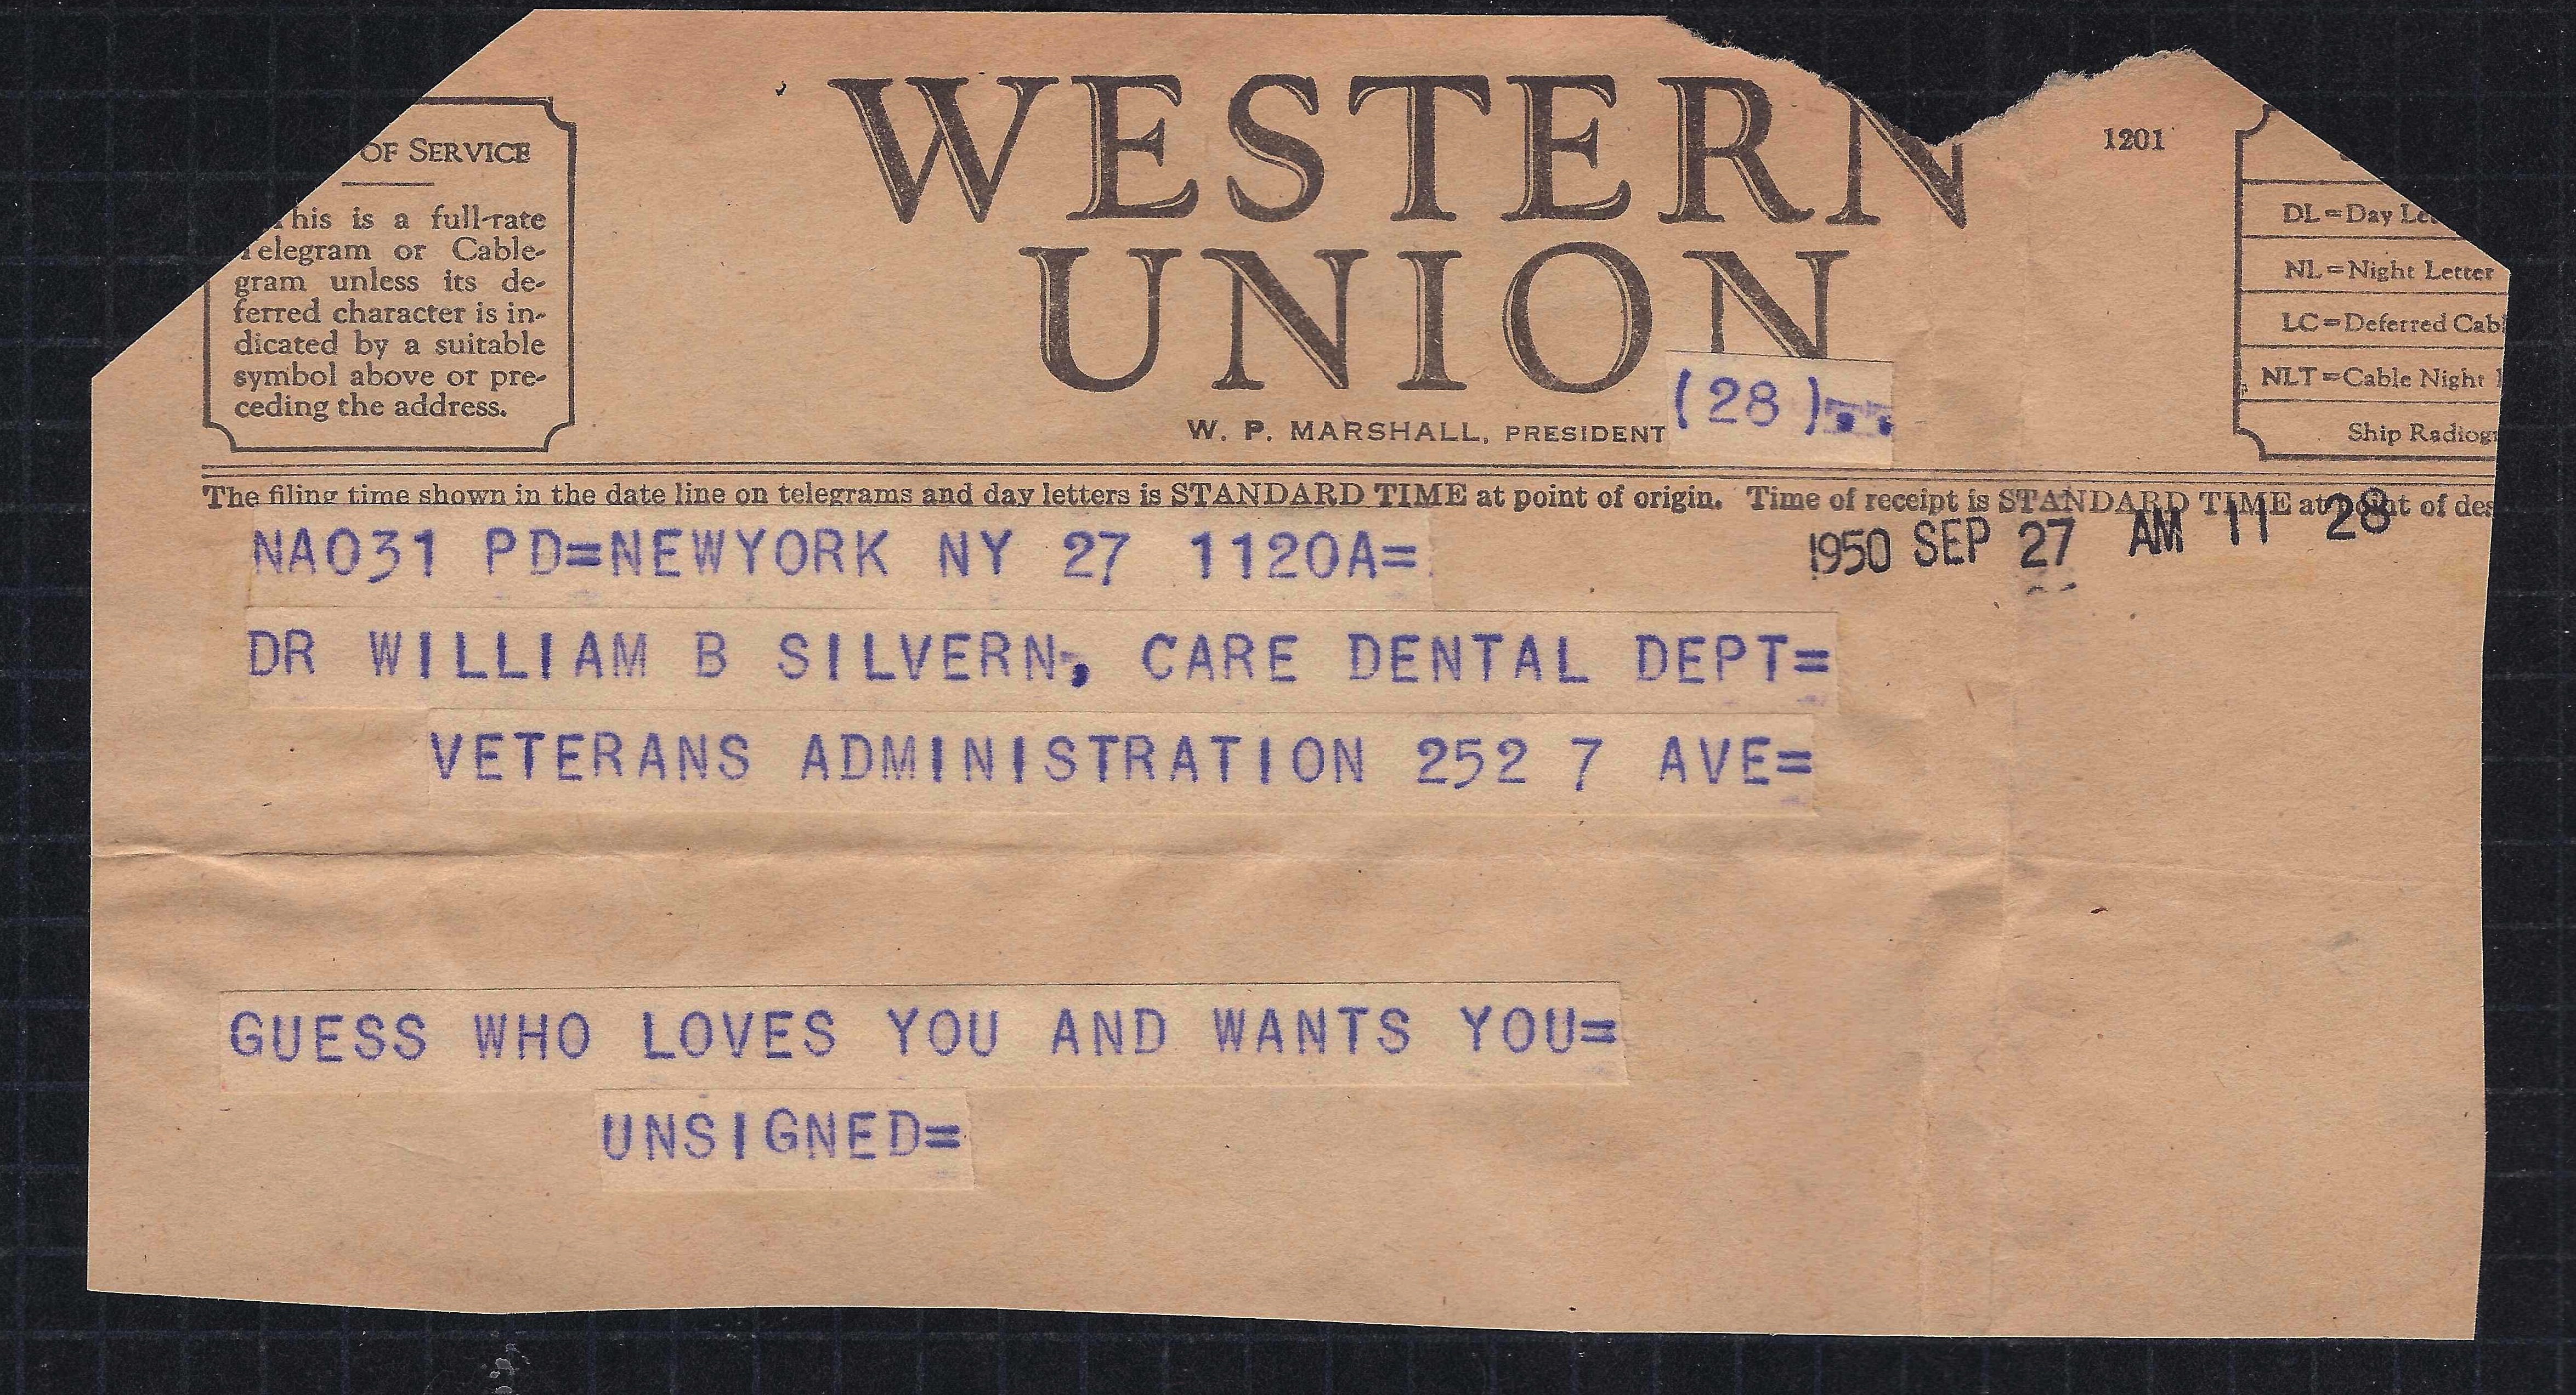 WESTERN
UNION
1201
OF SERVICE
This is a full-rate
Telegram or Cable-
gram unless its de-
ferred character is in-
dicated by a suitable
symbol above or pre-
ceding the address.
DL=Day Le
NL=Night Letter
LC=Deferred Cabl
NLT=Cable Night
Ship Radiogr
(28)..
W. P. MARSHALL, PRESIDENT
The filing time shown in the date line on telegrams and day letters is STANDARD TIME at point of origin. Time of receipt is STANDARD TIME at point of des
NA031 PD=NEWYORK NY 27 1120A=
1950 SEP 27 AM 11 28
DR WILLIAM B SILVERN, CARE DENTAL DEPT=
VETERANS ADMINISTRATION 252 7 AVE=
GUESS WHO LOVES YOU AND WANTS YOU=
UNSIGNED=